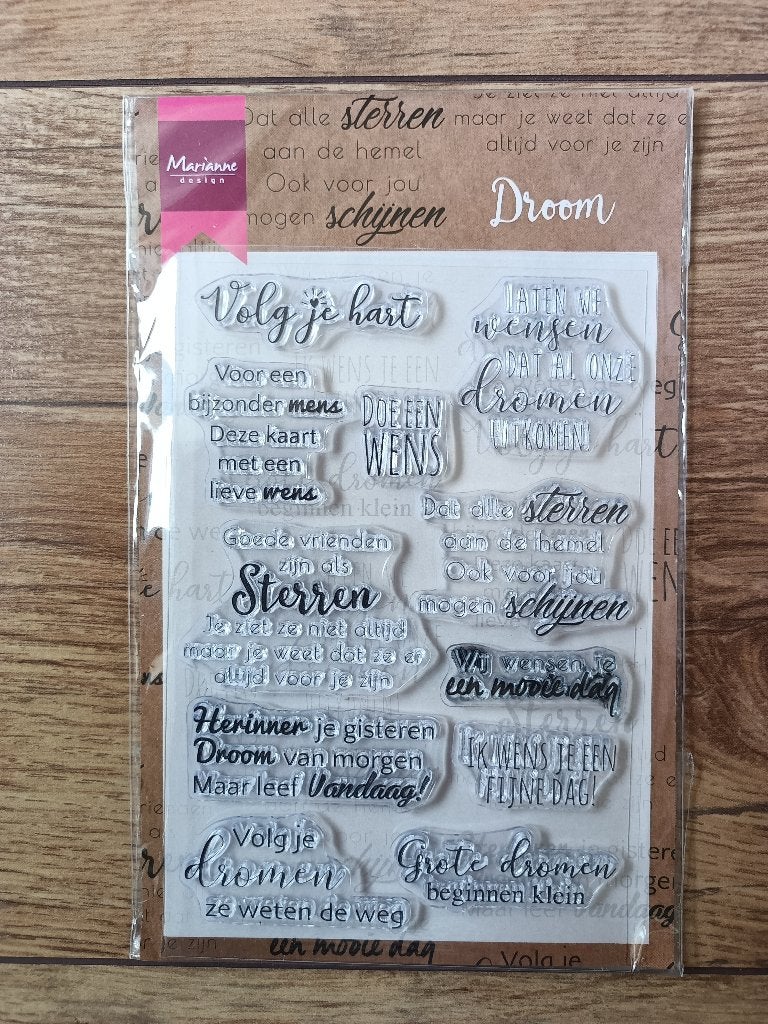 Je ziet ze niet altijd
Dat alle sterren maar je weet dat ze e
aan de hemel altijd voor je zijn
Ook voor jou
mogen schijnen
Marianne
design
Droom
Volg je hart
LATEN WE
wensen
DAT AL ONZE
dromen
UITKOMEN!
Voor een
bijzonder mens
Deze kaart
met een
lieve wens
DOE EEN
WENS
Dat alle sterren
aan de hemel
Ook voor jou
mogen schijnen
Goede vrienden
zijn als
Sterren
Je ziet ze niet altijd
maar je weet dat ze er
altijd voor je zijn
Wij wensen je
een mooie dag
Herinner je gisteren
Droom van morgen
Maar leef Vandaag!
IK WENS JE EEN
FIJNE DAG!
Volg je
dromen
ze weten de weg
Grote dromen
beginnen klein
je zijn
een mooie dag
Volg je